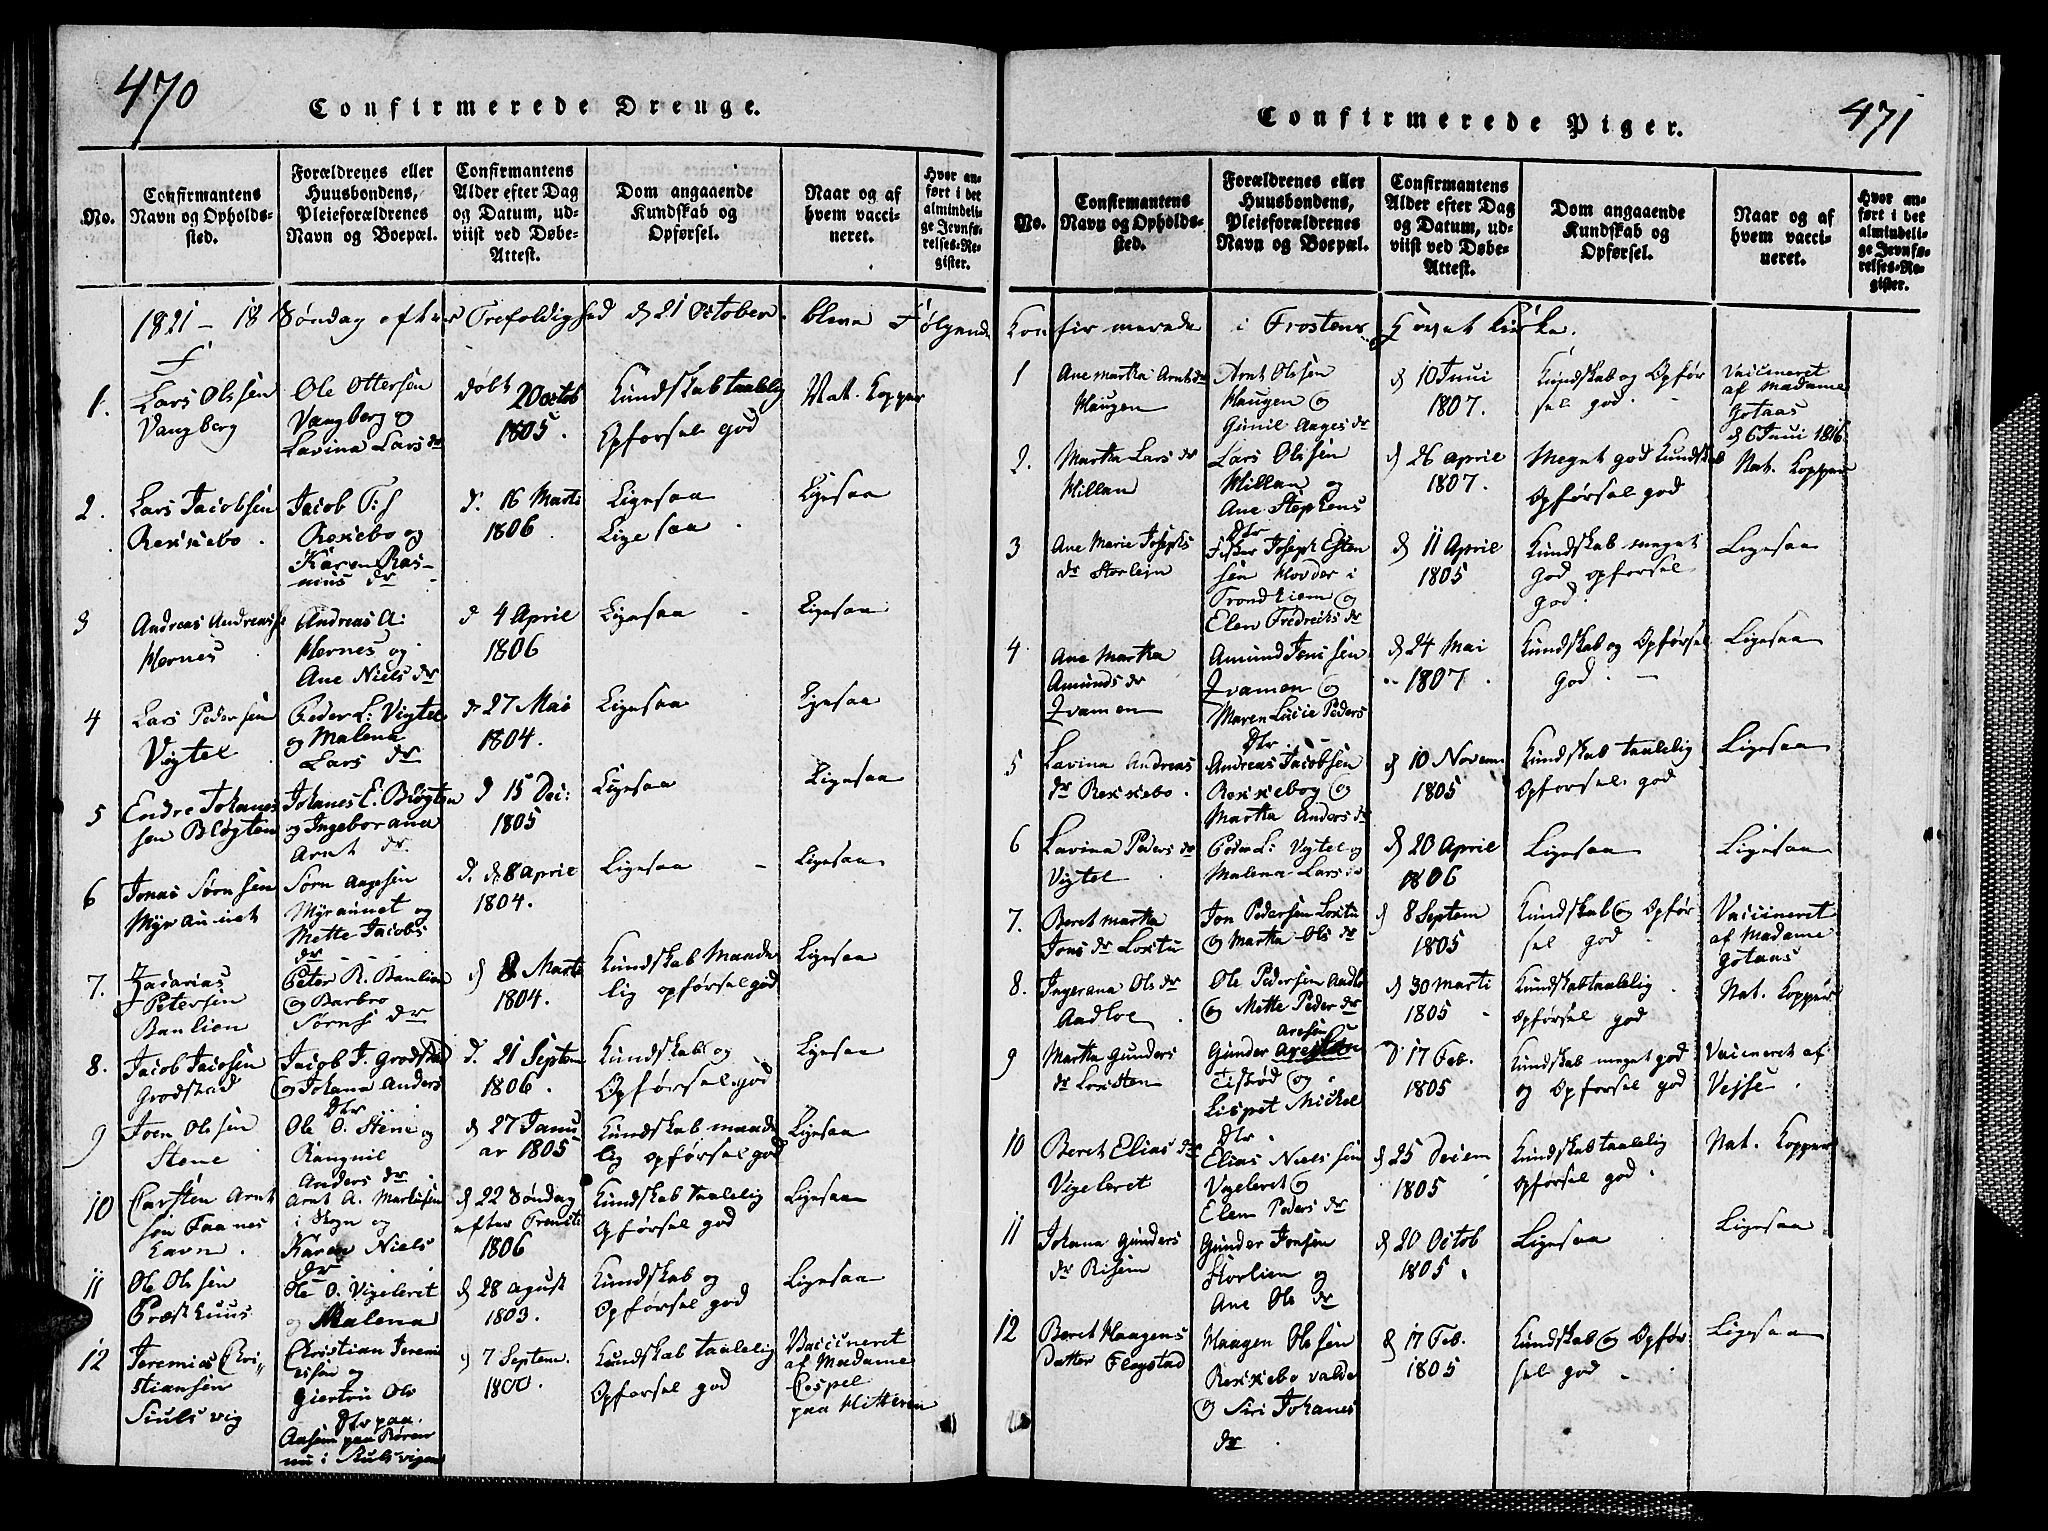 470
Confirmerede Drenge.
No.
Confirmantens
Navn og Opholds-
sted.
Forældrenes eller
Huusbondens,
Pleieforældrenes
Navn og Boepæl.
Confirmantens
Alder efter Dag
og Datum, ud-
viist ved Døbe-
Attest.
Dom angaaende
Kundskab og
Opførsel.
Naar og af
hvem vacci-
neret.
Hvor an-
ført i det
almindeli-
ge Jevnfø-
relses-Re-
gister.
1821 - 18 Søndag efter Trefoldighed d 21 October bleve Følgende
1.
Lars Olssen
Vangberg
Ole Ottersen
Vangberg og
Lavina Lars dr
døbt
20 octob
1805.
Kundskab taalelig
Opførsel god
Nat. Kopper
2.
Lars Jacobsen
Rexxebo.
Jacob
Rexebo og
Karen Ras-
mus dr
d. 16 Marti
1806
Ligesaa
Ligesaa
Ligesaa
3
Andreas Andreass
Hernes
Andreas A:
Hernes og
Ane Niels dr
d 4 April
1806
Ligesaa
Ligesaa
4
Lars Pedersen
Vigtel
Peder L: Vigtel
og Malena
Lars dr
d 27 Mai
1804.
Ligesaa
Ligesaa
5
Endre Johanes
sen Bløgten
Johanes E. Bløgten
og Ingeborana
Arnt dr
d 15 Dec:
1805
Ligesaa
Ligesaa
6
Jonas Sørnsen
Myraunet
Sørn Aagesen
Myraunet og
Mette Jacobs
dr
d. d 8 April
1804.
Ligesaa
Ligesaa
7.
Zacarias
Petersen
Banlien
Peter R. Banlien
og Barbro
Sørns dr
d 8 Marti
1804.
Kundskab Maade
lig opførsel god
Ligesaa
8.
Jacob Jacobsen
Grodstad
Jacob J. Grodstad
og Johana Anders
Dtr
d. 21 Septem
1806.
Kundskab og
Opførsel god
Ligesaa
9
Joen Olssen
Stene
Ole O. Stene og
Rangnil
Anders dr
d 27 Janu
ar 1805
Kundskab maade
lig opførsel god
Ligesaa
10
Carsten Arnt
sen Faanes
Eavn.
Arnt A. Martesen
i Skogn og
Karen Niels
dr
d 22 Søndag
efter Treniti
1806
Kundskab taalelig
Opførsel god
Ligesaa
11
Ole Olssen
Præsthuus
Ole O. Vigeleret
og Malena
d 28 agust
1803.
Kundskab og
Opførsel god
Ligesaa
12
Jeremias Chri-
stiansen
Siulsvig
Christian Jeremi
essen og
Giertru Ols
Dtr paa
d 7 Septem.
1800.
Kundskab taalelig
Opførsel god
Vaccineret
af Madame
Cospel
paa Hitteren
471
Confirmerede Piger.
No.
Confirmantens
Navn og Opholds-
sted.
Forældrenes eller
Huusbondens,
Pleieforældrenes
Navn og Boepæl.
Confirmantens
Alder efter Dag
og Datum, ud-
viist ved Døbe-
Attest.
Dom angaaende
Kundskab og
Opførsel.
Naar og af
hvem vacci-
neret.
Hvor an-
ført i det
almindeli-
ge Jevnfø-
relses-Re-
gister.
Konfirmerede i Frostens Hovet Kirke.
1
Ane Martha Arnts dr
Haugen
Arnt Olssen
Haugen og
Gunil Aages dr
d 10 Juni
1807.
Kundskab og Opfør
sel god.
Vaccineret
af Madame
Gotaas
d 6 Juni 1816
2.
Martha Lars dr
Hillan
Lars Olssen
Hillan og
Ane Stephens
Dtr
d 26 April
1807.
Meget god Kundskab
Opførsel god
Nat. Kopper
3
Ane Marie Josephs
dr Storlejn
Fisker Joseph Esten
sen Hovder i
Trondhiem og
Elen Fredrichs dr
d 11 April
1805
Kundskab meget
god opførsel
god.
Ligesaa
4
Ane Martha
Amunds dr
Qvamen
Amund Jonssen
Qvamen og
Maren Lucie Peders
Dtr.
d 24 Mai
1807.
Kundskab og Opførsel
god.
Ligesaa
5
Lavina Andreas
dr Rexxebo.
Andreas Jacobsen
Rexxebog og
Martha Anders dr
d 10 Novem
1805
Kundskab taalelig
Opførsel god
Ligesaa
6
Lavina Peders dr
Vigtel
Peder L: Vigtel og
Malena Lars dr
d 20 April
1806
Ligesaa
Ligesaa
7.
Beret Martha
Jons dr Loxtu
Jon Pedersen Loxtu
og Martha Ols dr
d 8 Septem
1805
Kundskab og Opfør
sel god
Vaccineret
af Madame
Gotaas
8.
Ingerana Ols dr
Aadloe
Ole Pedersen Aadlo
og Mette Peder dr
d 30 Marti
1805
Kundskab taalelig
Opførsel god
Nat. Kopper
9
Martha Gunders
dr Loxsten
Aresen
Gunder
og
Lispet Mickel
Dtr.
d 17 Feb.
1805
Kundskab meget god
og Opførsel god
Vaccineret af
Vejse.
10
Beret Elias dr
Vigeleret
Elias Nielssen
Vigeleret og
Elen Peders dr
d 25 Decem
1805
Kundskab taalelig
opførsel god.
Nat. Kopper
11
Johana Gunders
dr Risem
Gunder Jonsen
Storlien og
Ane Ols dr
d 20 Octob
1805.
Ligesaa
Ligesaa
12
Beret Haagens
datter Flogstad
Haagen Olssen
Rexxebo valde
og Siri Johanes
dr.
d 17 Feb.
1805
Kundskab og Opfør
sel god
Ligesaa